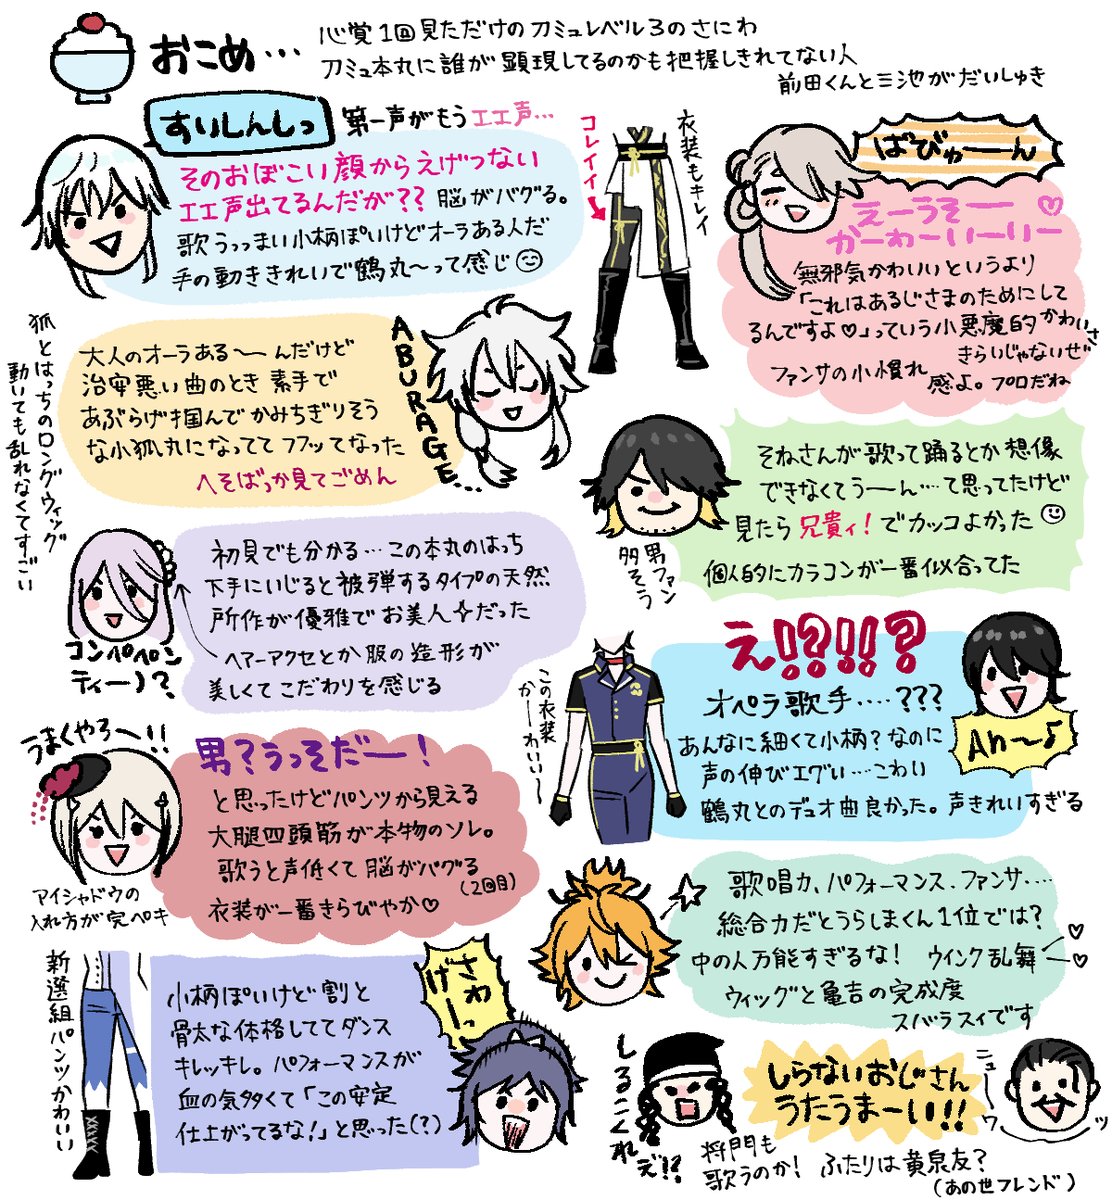 おこめ…
心覚1回見ただけの刀ミュレベル3のさにわ
刀ミュ本丸に誰が顕現してるのかも把握しきれてない人
前田くんと三池がだいしゅき
すりしんしっ
第一声がもうエエ声…
そのおぼこい顔からえげつない
エエ声出てるんだが?? 脳がバグる。
歌うっっまい小柄ぽいけどオーラある人だ
手の動ききれいで鶴丸〜って感じ
コレイイ
衣装もキレイ
ばびゅーーん
えーうそー
かーわーいーいー
無邪気かわいいというより
「これはあるじさまのためにして
るんですよ♡」っていう小悪魔的かわいさ
きらいじゃないぜ
ファンサの小慣れ感よ。プロだね
狐とはっちのロングウィッグ
動いても乱れなくてすごい
大人のオーラある〜んだけど
治安悪い曲のとき素手で
あぶらげ掴んでかみちぎりそう
な小狐丸になっててフフッてなった
へそばっか見てごめん
ABURAGE…
そねさんが歌って踊るとか想像
できなくてうーん…て思ってたけど
見たら兄貴ィ!でカッコよかった
個人的にカラコンが一番似合ってた
男ファン
多そう
初見でも分かる…この本丸のはっち
下手にいじると被弾するタイプの天然
所作が優雅でお美人だった
ヘアーアクセとか服の造形が
美しくてこだわりを感じる
コンペペン
ティーノ?
え!?!!?
オペラ歌手….???
あんなに細くて小柄?なのに
声の伸びエグい…こわい
鶴丸とのデュオ曲良かった。声きれいすぎる
An〜♪
この衣装
かーわいい〜
うまくやろー!!
男?うっそだー!
と思ったけどパンツから見える
大腿四頭筋が本物のソレ。
歌うと声低くて脳がバグる
(2回目)
衣装が一番きらびやか♡
アイシャドウの
入れ方が完ペキ
歌唱力、パフォーマンス、ファンサ….
総合力だとうらしまくん1位では?
中の人万能すぎるな! ウインク乱舞
ウィッグと亀吉の完成度
スバラスィです
新選組パンツかわいい
小柄ぽいけど割と
骨太な体格しててダンス
キレッキレ。パフォーマンスが
血の気多くて「この安定
仕上がってるな!」と思った(?)
さわ
げーっ
しるこくれ
ど!?
将門も
歌うのか!
しらないおじさん
うたうまーい!!
ふたりは黄泉友?
(あの世フレンド)
ニューワッ